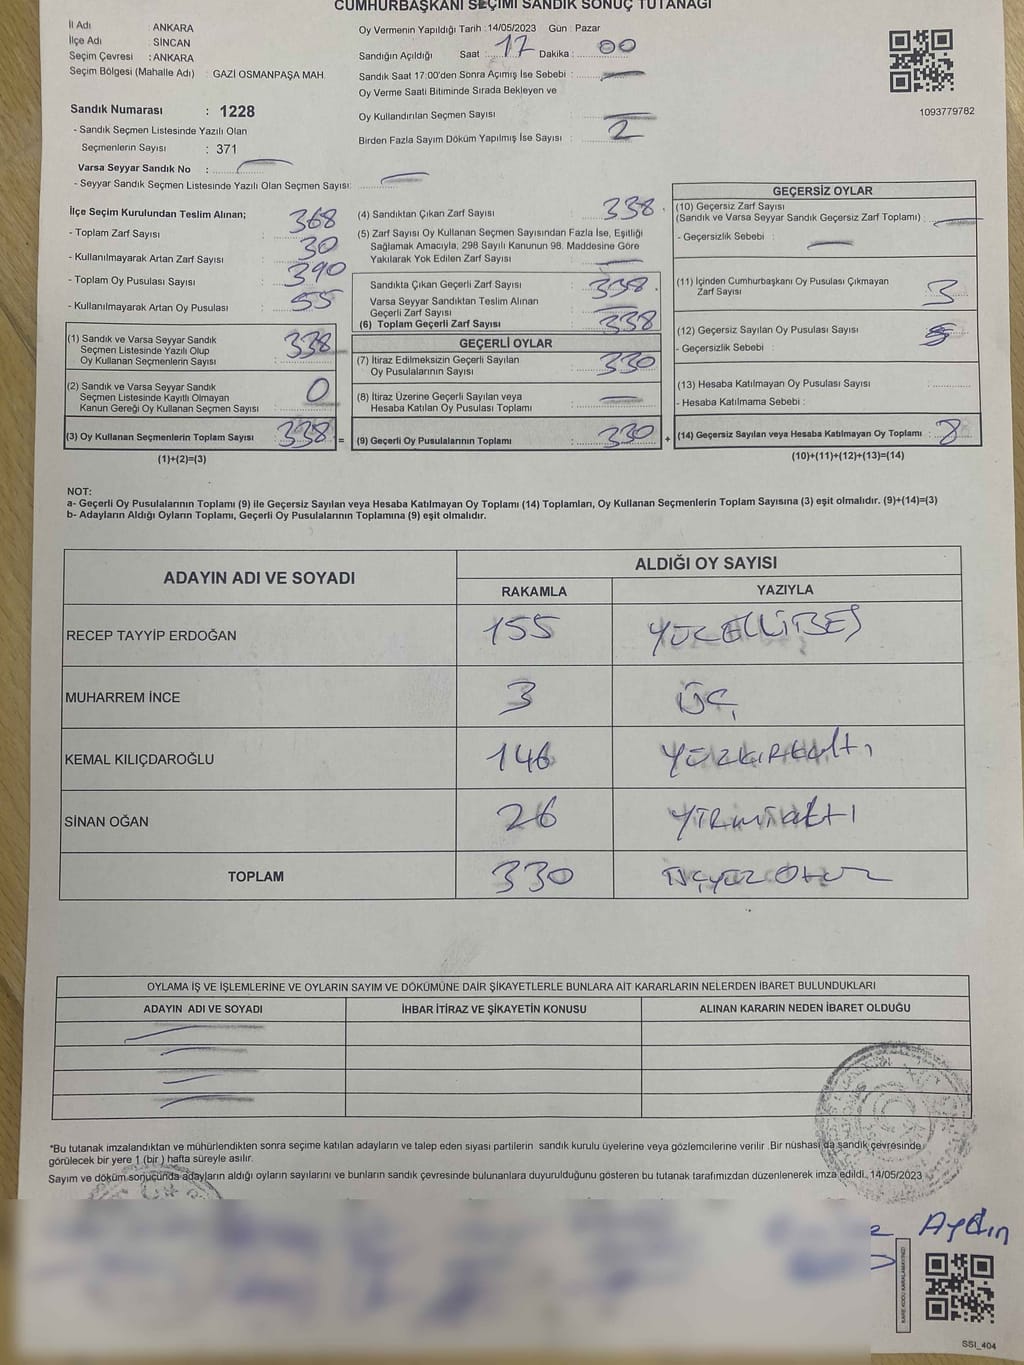 CUMHURBAŞKANI SEÇİMİ SANDIK SONUÇ TUTANAĞI
İl Adı : ANKARA
İlçe Adı : SİNCAN
Seçim Çevresi : ANKARA
Seçim Bölgesi (Mahalle Adı) : GAZİ OSMANPAŞA MAH.
Sandık Numarası : 1228
- Sandık Seçmen Listesinde Yazılı Olan
Seçmenlerin Sayısı : 371
Varsa Seyyar Sandık No :
- Seyyar Sandık Seçmen Listesinde Yazılı Olan Seçmen Sayısı:
Oy Vermenin Yapıldığı Tarih :14/05/2023 Gün : Pazar
Sandığın Açıldığı Saat : 17 Dakika : 00
Sandık Saat 17:00'den Sonra Açımış İse Sebebi :
Oy Verme Saati Bitiminde Sırada Bekleyen ve
Oy Kullandırılan Seçmen Sayısı :
Birden Fazla Sayım Döküm Yapılmış İse Sayısı : 2
1093779782
İlçe Seçim Kurulundan Teslim Alınan;
- Toplam Zarf Sayısı : 368
- Kullanılmayarak Artan Zarf Sayısı : 30
- Toplam Oy Pusulası Sayısı : 390
- Kullanılmayarak Artan Oy Pusulası : 55
(1) Sandık ve Varsa Seyyar Sandık
Seçmen Listesinde Yazılı Olup
Oy Kullanan Seçmenlerin Sayısı : 338
(2) Sandık ve Varsa Seyyar Sandık
Seçmen Listesinde Kayıtlı Olmayan
Kanun Gereği Oy Kullanan Seçmen Sayısı : 0
(3) Oy Kullanan Seçmenlerin Toplam Sayısı : 338 =
(1)+(2)=(3)
(4) Sandıktan Çıkan Zarf Sayısı : 338
(5) Zarf Sayısı Oy Kullanan Seçmen Sayısından Fazla İse, Eşitliği
Sağlamak Amacıyla, 298 Sayılı Kanunun 98. Maddesine Göre
Yakılarak Yok Edilen Zarf Sayısı :
Sandıkta Çıkan Geçerli Zarf Sayısı : 338
Varsa Seyyar Sandıktan Teslim Alınan
Geçerli Zarf Sayısı :
(6) Toplam Geçerli Zarf Sayısı : 338
GEÇERLİ OYLAR
(7) İtiraz Edilmeksizin Geçerli Sayılan
Oy Pusulalarının Sayısı : 330
(8) İtiraz Üzerine Geçerli Sayılan veya
Hesaba Katılan Oy Pusulası Toplamı :
(9) Geçerli Oy Pusulalarının Toplamı : 330 +
GEÇERSİZ OYLAR
(10) Geçersiz Zarf Sayısı
(Sandık ve Varsa Seyyar Sandık Geçersiz Zarf Toplamı) :
- Geçersizlik Sebebi :
(11) İçinden Cumhurbaşkanı Oy Pusulası Çıkmayan
Zarf Sayısı : 3
(12) Geçersiz Sayılan Oy Pusulası Sayısı : 5
- Geçersizlik Sebebi :
(13) Hesaba Katılmayan Oy Pusulası Sayısı :
- Hesaba Katılmama Sebebi :
(14) Geçersiz Sayılan veya Hesaba Katılmayan Oy Toplamı : 8
(10)+(11)+(12)+(13)=(14)
NOT:
a- Geçerli Oy Pusulalarının Toplamı (9) ile Geçersiz Sayılan veya Hesaba Katılmayan Oy Toplamı (14) Toplamları, Oy Kullanan Seçmenlerin Toplam Sayısına (3) eşit olmalıdır. (9)+(14)=(3)
b- Adayların Aldığı Oyların Toplamı, Geçerli Oy Pusulalarının Toplamına (9) eşit olmalıdır.
ADAYIN ADI VE SOYADI ALDIĞI OY SAYISI
RAKAMLA YAZIYLA
RECEP TAYYİP ERDOĞAN 155 YÜZELLİBEŞ
MUHARREM İNCE 3 ÜÇ
KEMAL KILIÇDAROĞLU 146 YÜZKIRKaltı
SİNAN OĞAN 26 YİRMİaltı
TOPLAM 330 ÜÇYÜZ OTUZ
OYLAMA İŞ VE İŞLEMLERİNE VE OYLARIN SAYIM VE DÖKÜMÜNE DAİR ŞİKAYETLERLE BUNLARA AİT KARARLARIN NELERDEN İBARET BULUNDUKLARI
ADAYIN ADI VE SOYADI İHBAR İTİRAZ VE ŞİKAYETİN KONUSU ALINAN KARARIN NEDEN İBARET OLDUĞU
*Bu tutanak imzalandıktan ve mühürlendikten sonra seçime katılan adayların ve talep eden siyasi partilerin sandık kurulu üyelerine veya gözlemcilerine verilir .Bir nüshası da sandık çevresinde
görülecek bir yere 1 (bir ) hafta süreyle asılır.
Sayım ve döküm sonucunda adayların aldığı oyların sayılarını ve bunların sandık çevresinde bulunanlara duyurulduğunu gösteren bu tutanak tarafımızdan düzenlenerek imza edildi., 14/05/2023
Aydın
KARE KODU KARALAMAYINIZ!
SSI_404